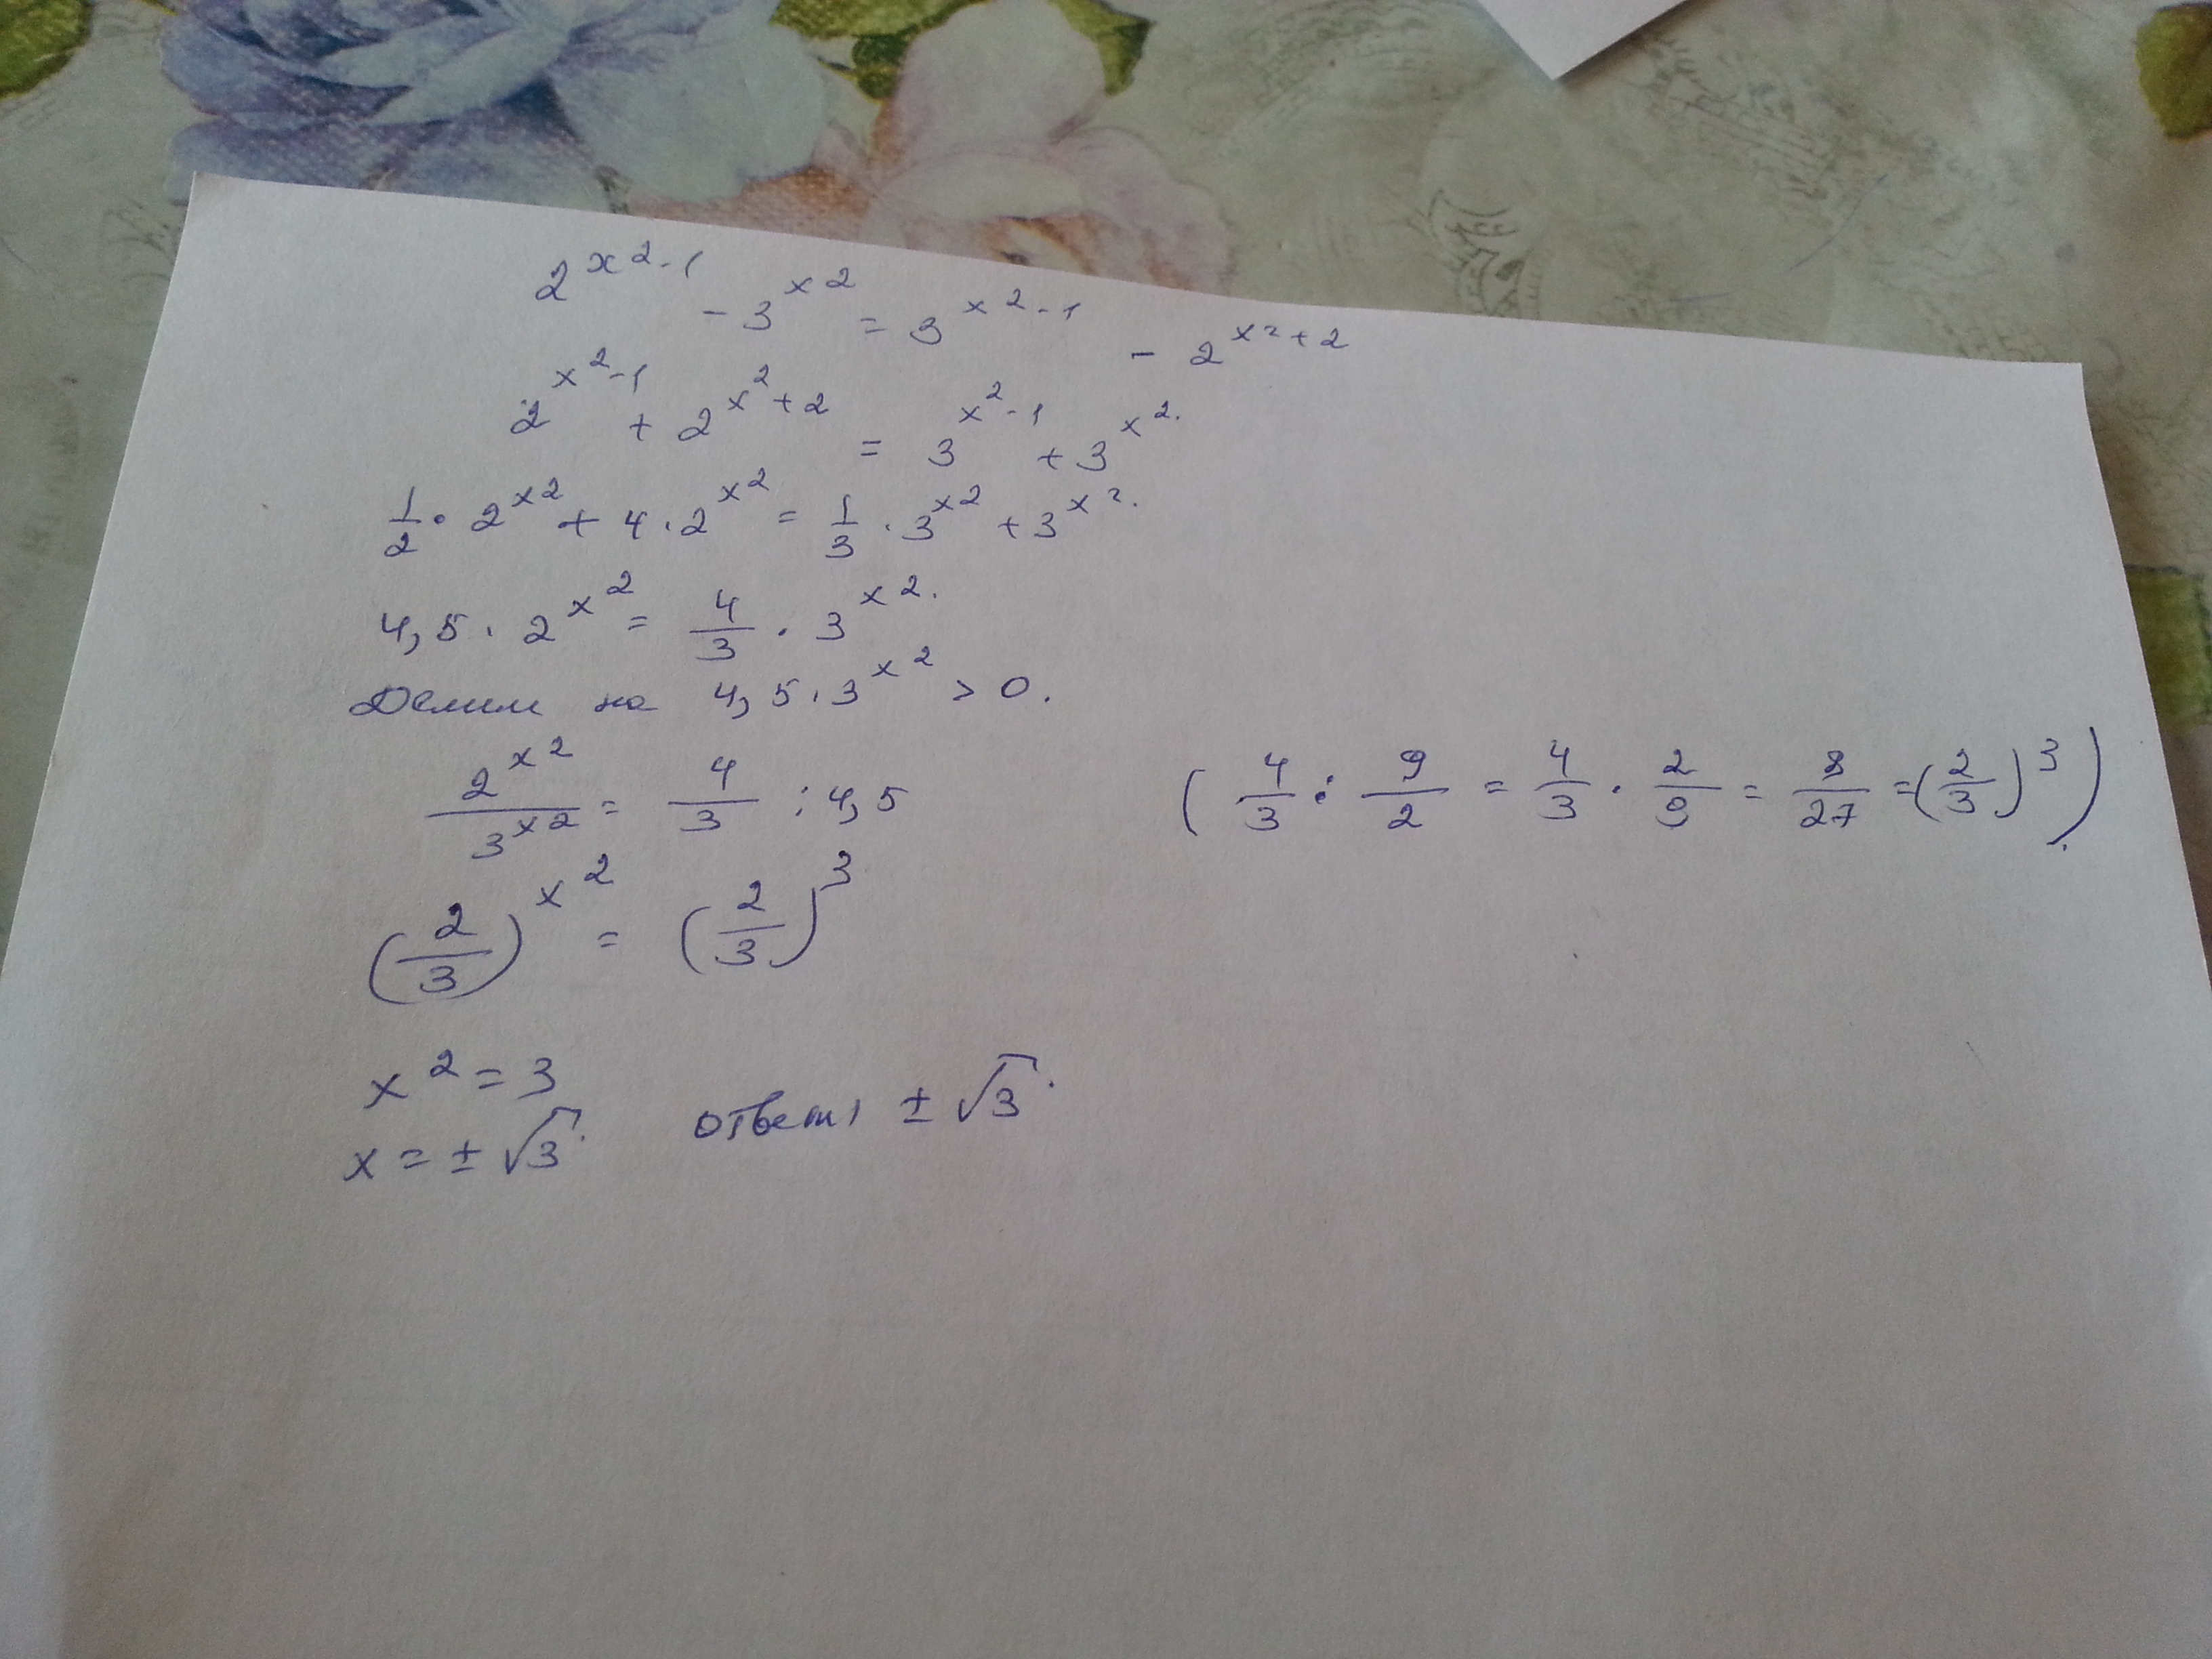 2^{x^2-1} - 3^{x^2} = 3^{x^2-1} - 2^{x^2+2}
2^{x^2-1} + 2^{x^2+2} = 3^{x^2-1} + 3^{x^2}.
1/2 · 2^{x^2} + 4 · 2^{x^2} = 1/3 · 3^{x^2} + 3^{x^2}.
4,5 · 2^{x^2} = 4/3 · 3^{x^2}.
Делим на 4,5 · 3^{x^2} > 0.
2^{x^2}/3^{x^2} = 4/3 : 4,5 (4/3 : 9/2 = 4/3 · 2/9 = 8/27 = (2/3)^3).
(2/3)^{x^2} = (2/3)^3
x^2 = 3
x = ± √3. ответ: ± √3.